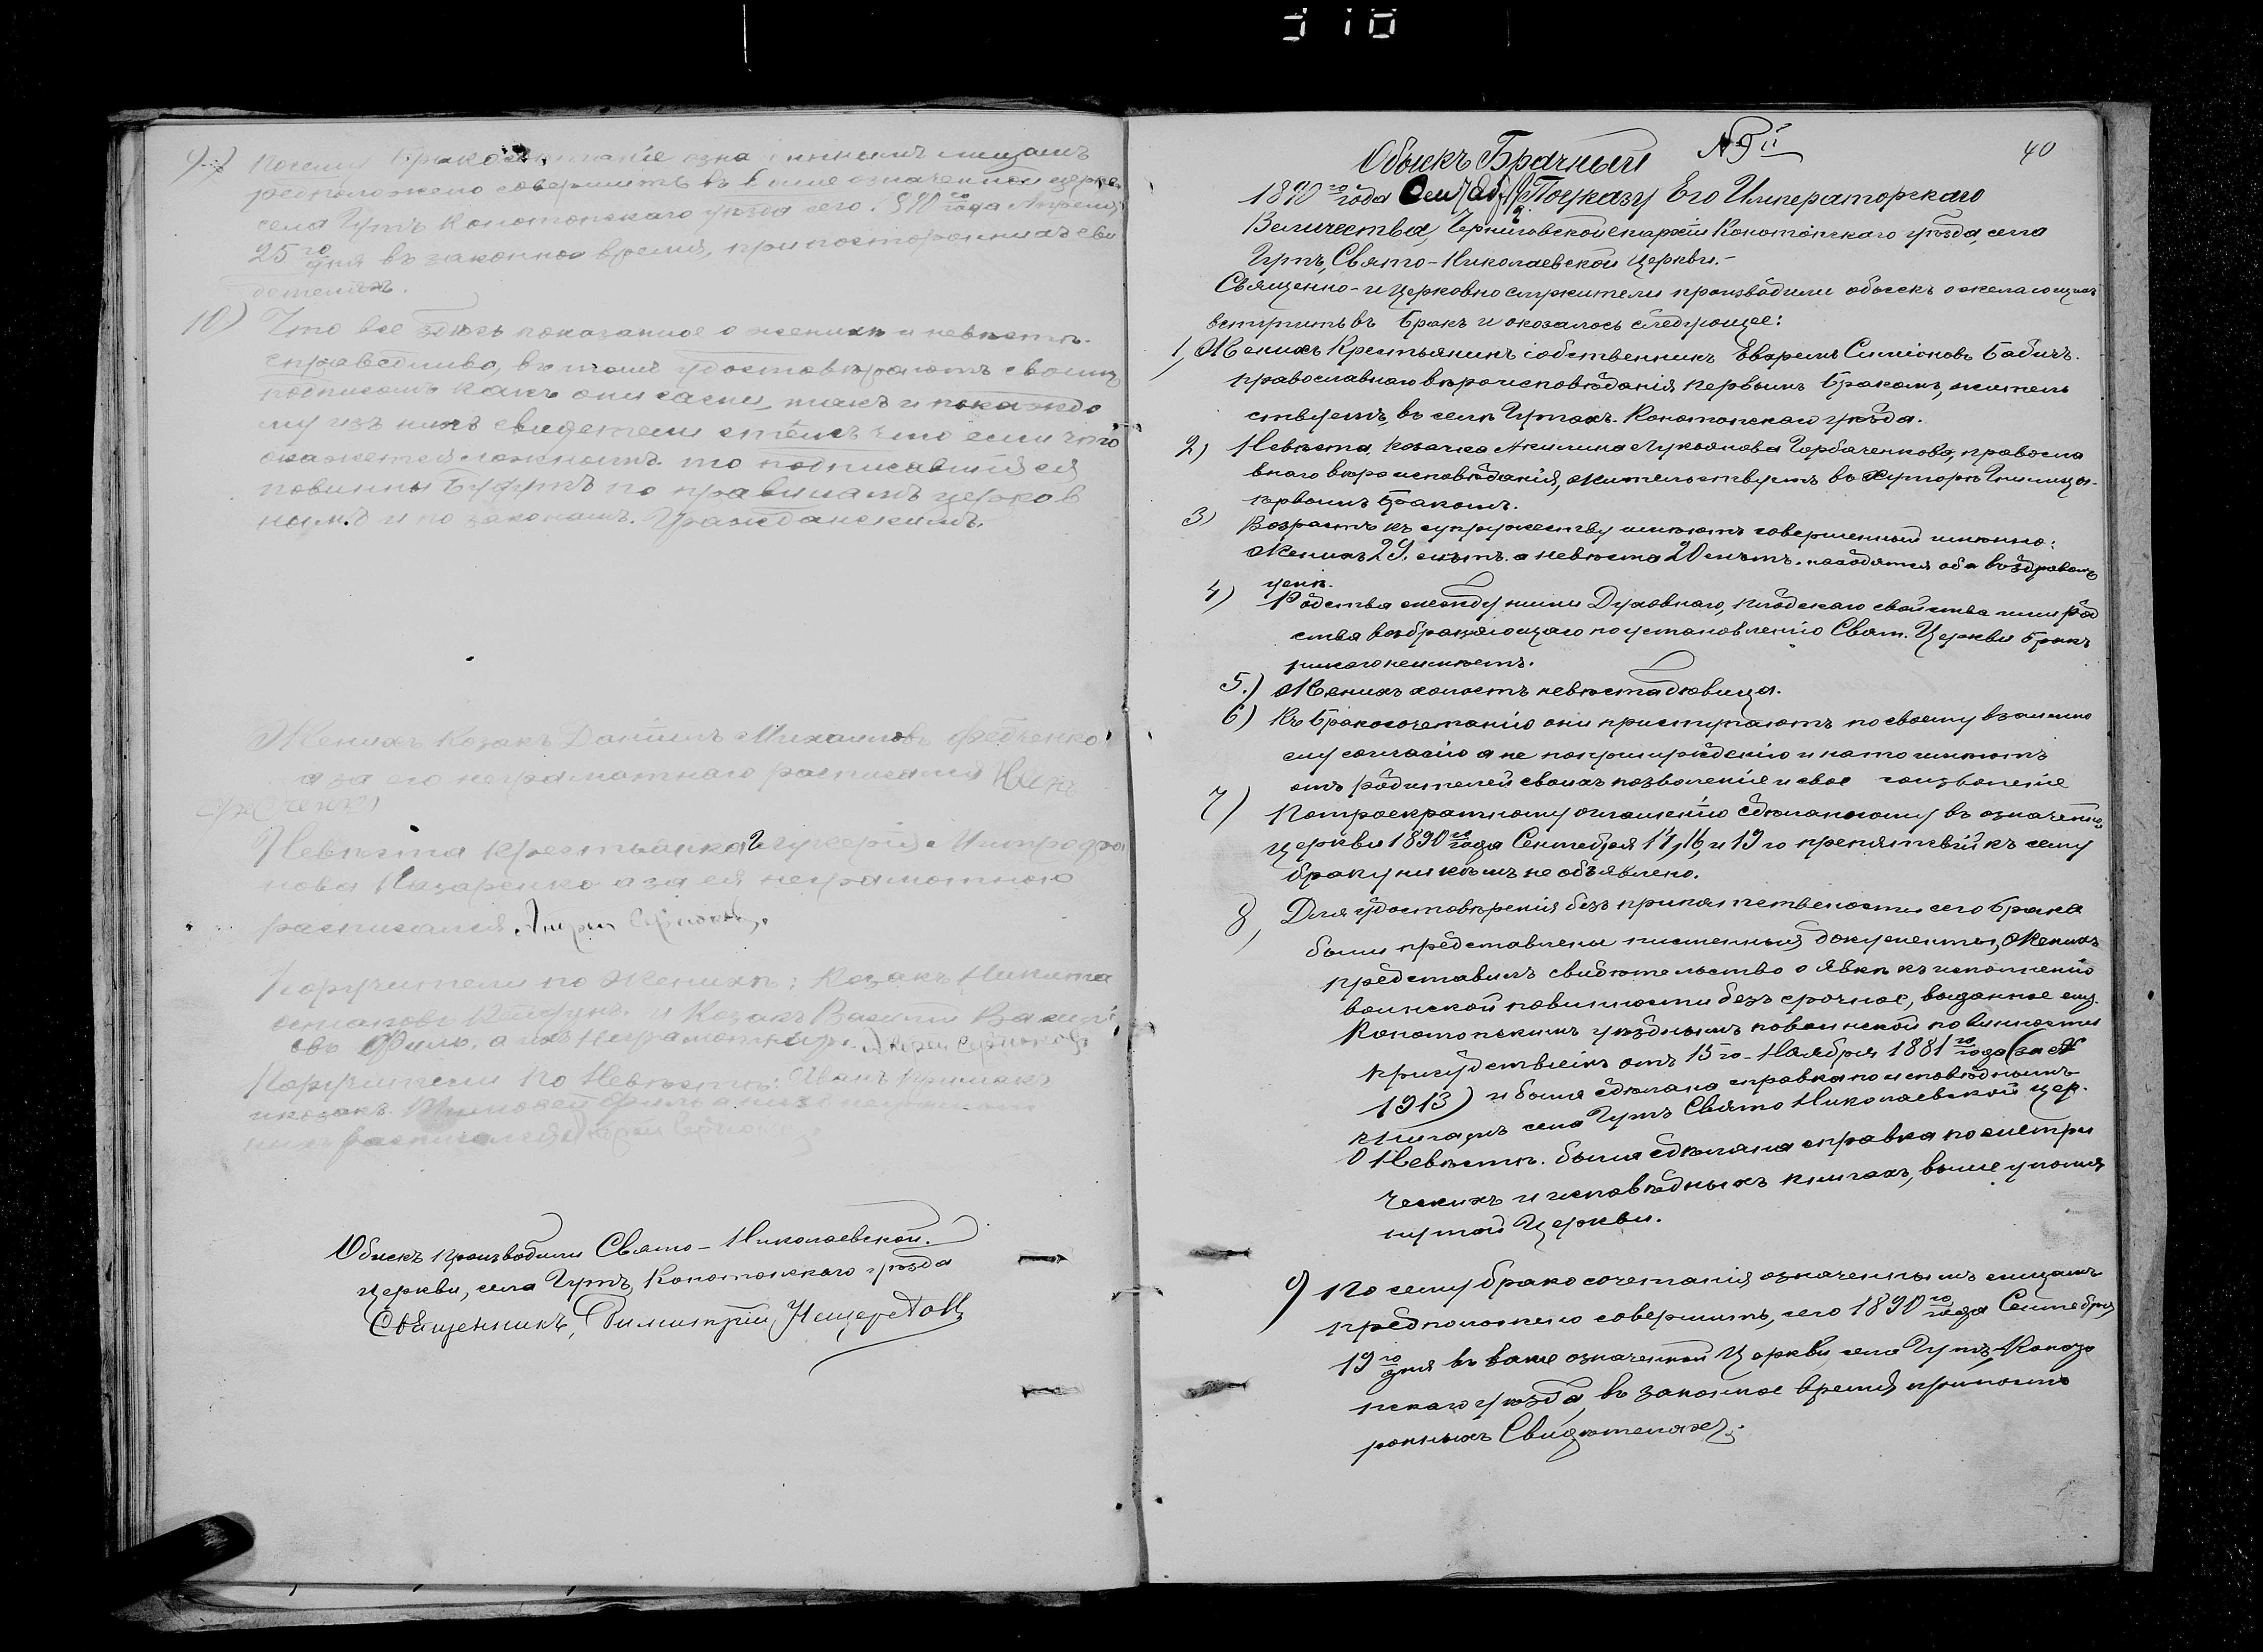 310
9.) Посему бракосочетаніе озна ченнымъ лицамъ
предположено совершить въ выше означенной церкв
села Гутъ Конотопскаго уѣзда сего 1890 го года Апреля
25 го дня въ законное время, при постороннихъ сви
детеляхъ.
10) Что все здѣсь показанное о женихѣ и невѣстѣ
справедливо, въ томъ удостовѣряютъ своимъ
подписомъ какъ они сами, такъ и по каждо
му изъ нихъ свидетели стѣмъ что если что
окажется ложнымъ, то подписавшіяся
повинны будутъ по правиламъ церков
нымъ и по законамъ Гражданскимъ.
Женихъ Козакъ Даніилъ Михаиловъ Федченко
а за его неграмотнаго расписался
Федченко
Невѣста крестьянка Гликерія Митрофа
нова Назаренко а за ея неграмотною
расписался Андрей
Поручители по Женихѣ: Козакъ Никита
и Козакъ Василій Васил
овъ Филь, а за ихъ Неграмотныхъ Андрей
Поручители по Невѣстѣ: Иванъ
и козакъ Тимофей Филь а за ихъ неграмот
ныхъ расписался Андрей
Обыскъ производили Свято-Николаевской
церкви, села Гутъ, Конотопскаго уѣзда
Священникъ, Димитрій
40
Обыскъ Брачный №9й
1890 го года Сентября По указу Его Императорскаго
Величества, Черниговской епархіи Конотопскаго уѣзда, села
Гутъ, Свято-Николаевской церкви.-
Священно-и церковно служители производили обыскъ о желающихъ
вступить въ бракъ и оказалось следующее:
1, Женихъ Крестьянинъ собственникъ Евфремъ Симіоновъ Бабичъ.
православнаго вѣроисповѣданія первымъ бракомъ, житель
ствуетъ, въ селѣ Гутахъ. Конотопскаго уѣзда.
2) Невѣста, козачка Акилина Лукьянова Горбаченкова, правосла
внаго вѣроисповѣданія, жительствуетъ въ Хуторѣ
первымъ бракомъ.
3) Возрастъ къ супружеству имѣютъ совершенный именно:
Женихъ 29. лѣтъ. а невѣста 20 лѣтъ. находятся оба въ здравомъ
умѣ.
4) Родства между ними Духовнаго, плодскаго свойства или род
ства возбраняющаго по установленію Свят. Церкви бракъ
никакого неимѣетъ.
5.) Женихъ холостъ невѣста дѣвица.
6) Къ бракосочетанію они приступаютъ по своему взаимно
му согласію а не по принужденію и на то имѣютъ
отъ родителей своихъ позволеніе и свое соизволеніе
7) По троекратному оглашенію сдѣланному въ означенно
церкви 1890 го года Сентебря 14, 16, и 19 го препятствій къ сему
браку ни кѣмъ не объявлено.
8, Для удостовѣренія безъ препятственности сего брака
были представлены письменныя документы, Женихъ
представилъ свидѣтельство о явкѣ къ исполненію
воинской повинности безъ срочное, выданное ему
Конотопскимъ уѣзднымъ по воинской повинности
присудствіемъ отъ 15 го Ноября 1881 го года (за №
1913) и была сдѣлана справка по исповѣднымъ
книгамъ села Гутъ Свято Николаевской цер.
О Невѣстѣ. была сдѣлана справка по метри
ческихъ и исповѣдныхъ книгахъ, выше упомя
нутой Церкви.
9) По сему брако сочетанія означеннымъ лицамъ
предположено совершить, сего 1890 го года Сентебря
19 го дня въ выше означенной Церкви села Гутъ Коното
пскаго уѣзда, въ законное время при посто
ронныхъ Свидѣтеляхъ.